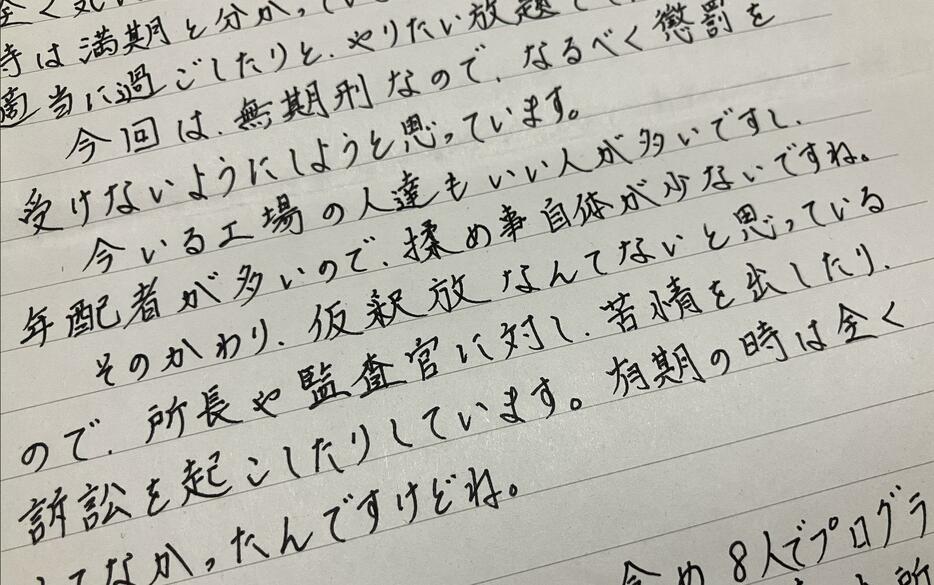 全く気に
時は満期と分かってい
適当に過ごしたりと、やりたい放題で
今回は、無期刑なので、なるべく懲罰を
受けないようにしようと思っています。
今いる工場の人達もいい人が多いですし、
年配者が多いので、揉め事自体が少ないですね。
そのかわり、仮釈放なんてないと思っている
ので、所長や監査官に対し、苦情を出したり、
訴訟を起こしたりしています。有期の時は全く
てなかったんですけどね。
含め8人でプログラ